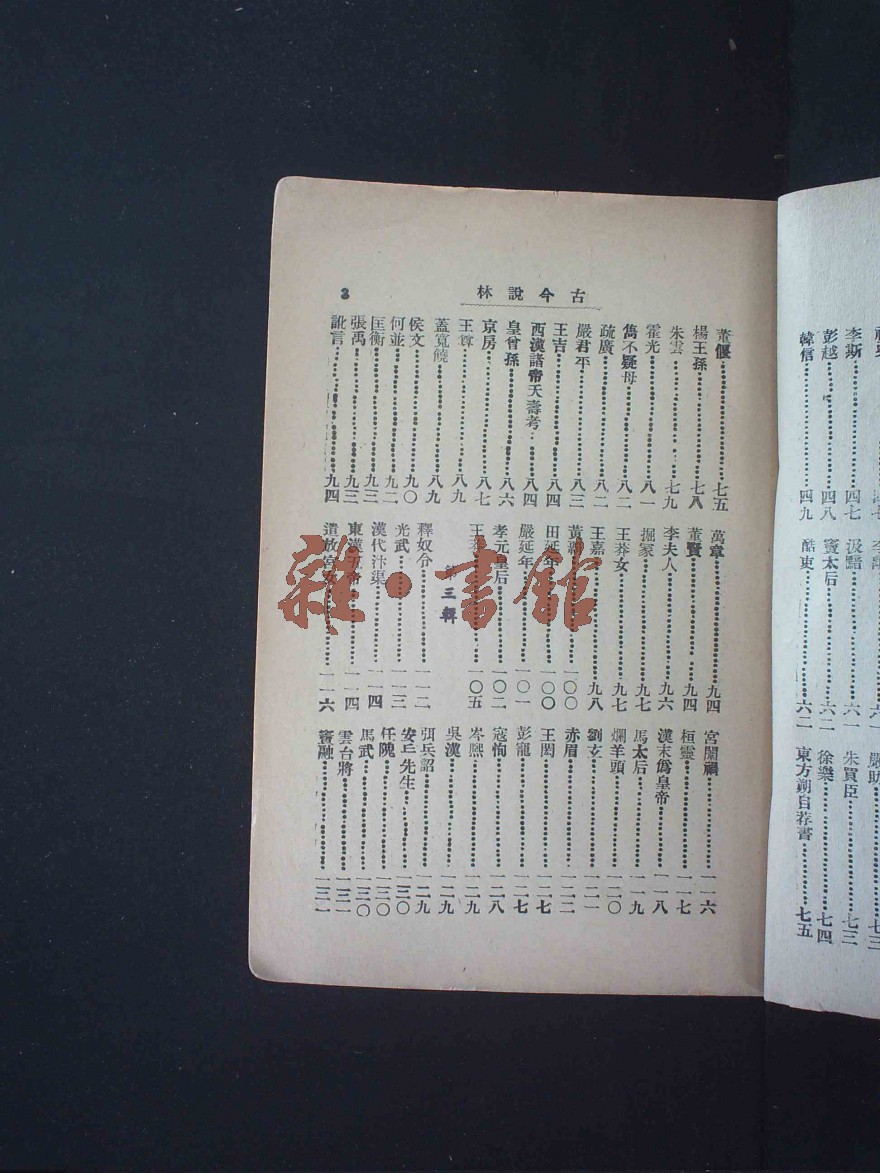 古今說林
3
董偃……七五
楊王孫……七八
朱雲……七九
霍光……八一
雋不疑母……八二
疏廣……八二
嚴君平……八三
王吉……八四
西漢諸帝夭壽考……八四
皇曾孫……八六
京房……八七
王尊……八九
蓋寬饒……八九
侯文……九〇
何並……九二
匡衡……九三
張禹……九三
訛言……九四
萬章……九四
董賢……九四
李夫人……九六
掘冢……九七
王莽女……九七
王嘉……九八
黃霸……一〇〇
田延年……一〇〇
嚴延年……一〇一
孝元皇后……一〇二
王莽……一〇五
第三輯
釋奴令……一一二
光武……一一三
漢代汴渠……一一四
東漢五帝……一一四
遣放宮女……一一六
宮闈禍……一一六
桓靈……一一七
漢末僞皇帝……一一八
馬太后……一一九
爛羊頭……一二〇
劉玄……一二一
赤眉……一二二
王閎……一二七
彭寵……一二七
寇恂……一二八
岑熙……一二九
吳漢……一二九
弭兵詔……一二九
安丘先生……一三〇
任隗……一三〇
馬武……一三〇
雲台將……一三一
竇融……一三一
李斯……四七
彭越……四八
韓信……四九
汲黯……六一
竇太后……六二
酷吏……六二
嚴助……七三
朱買臣……七三
徐樂……七四
東方朔自荐書……七五
雜·書館